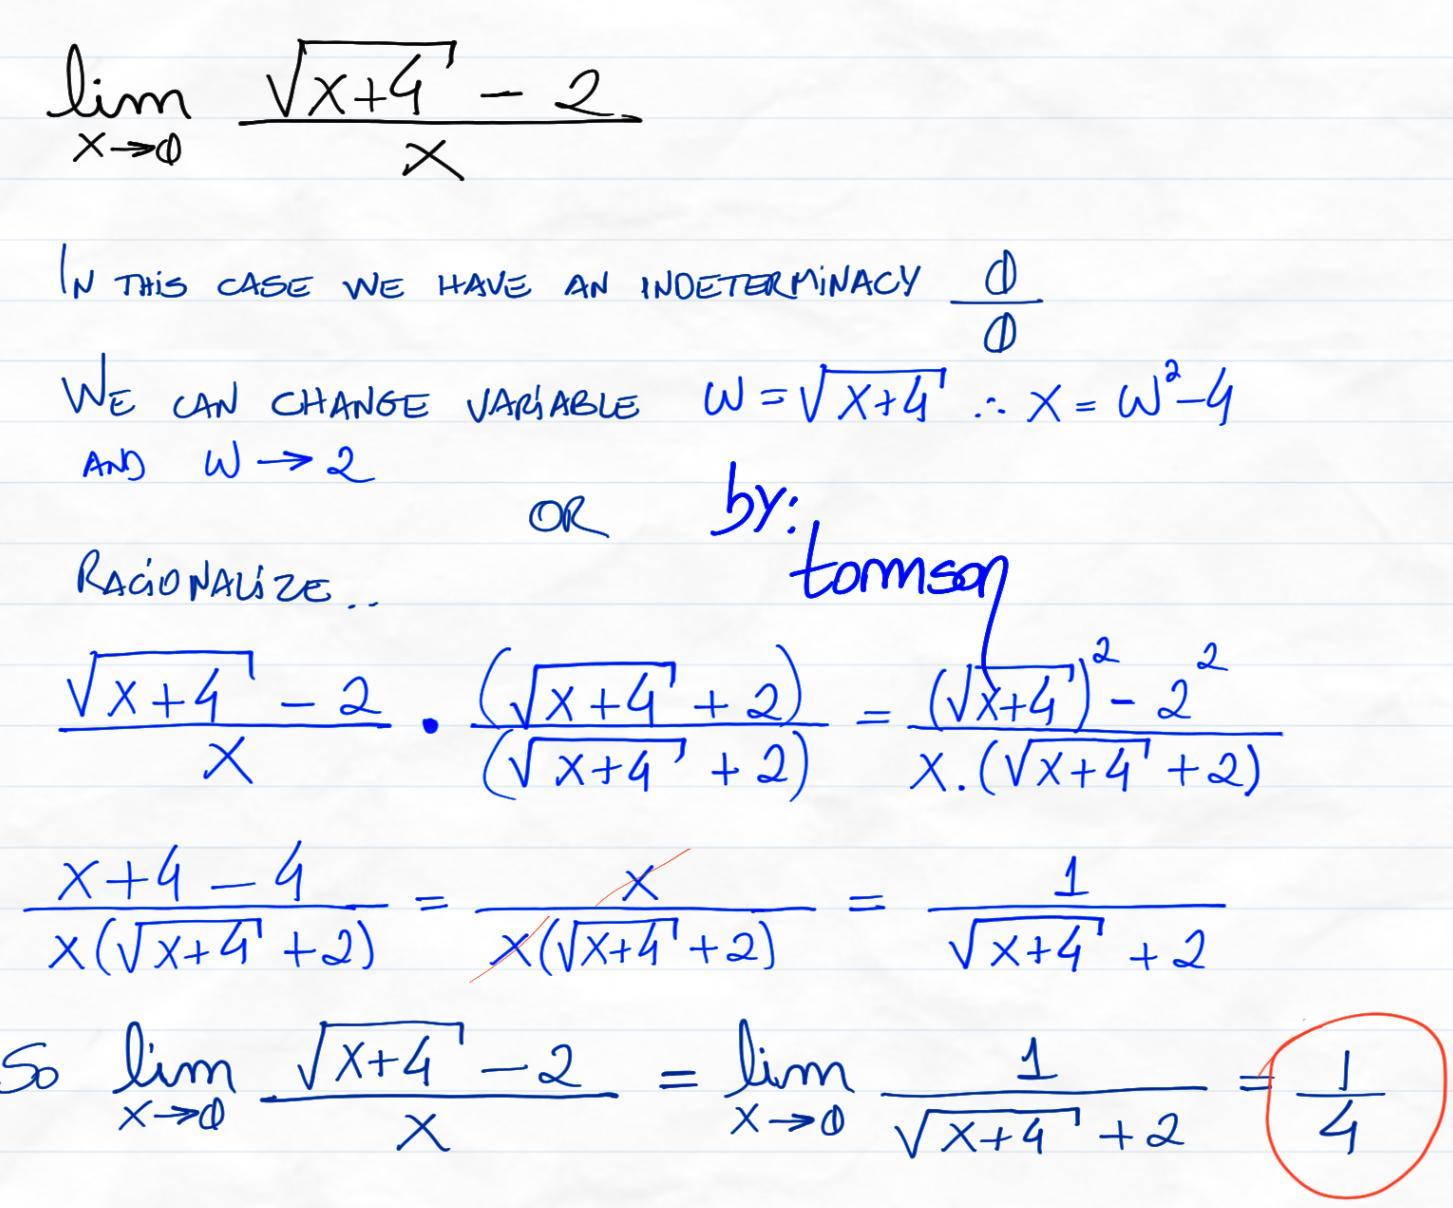 lim x→0 (√(x+4) - 2) / x
IN THIS CASE WE HAVE AN INDETERMINACY 0/0
WE CAN CHANGE VARIABLE W = √(X+4) ∴ X = W² - 4
AND W → 2
OR
by:
tommson
RACIONALIZE..
(√(x+4) - 2) / x • (√(x+4) + 2) / (√(x+4) + 2) = ((√(x+4))² - 2²) / (x.(√(x+4) + 2))
(x+4 - 4) / (x(√(x+4) + 2)) = x / (x(√(x+4) + 2)) = 1 / (√(x+4) + 2)
So lim x→0 (√(x+4) - 2) / x = lim x→0 1 / (√(x+4) + 2) = 1/4